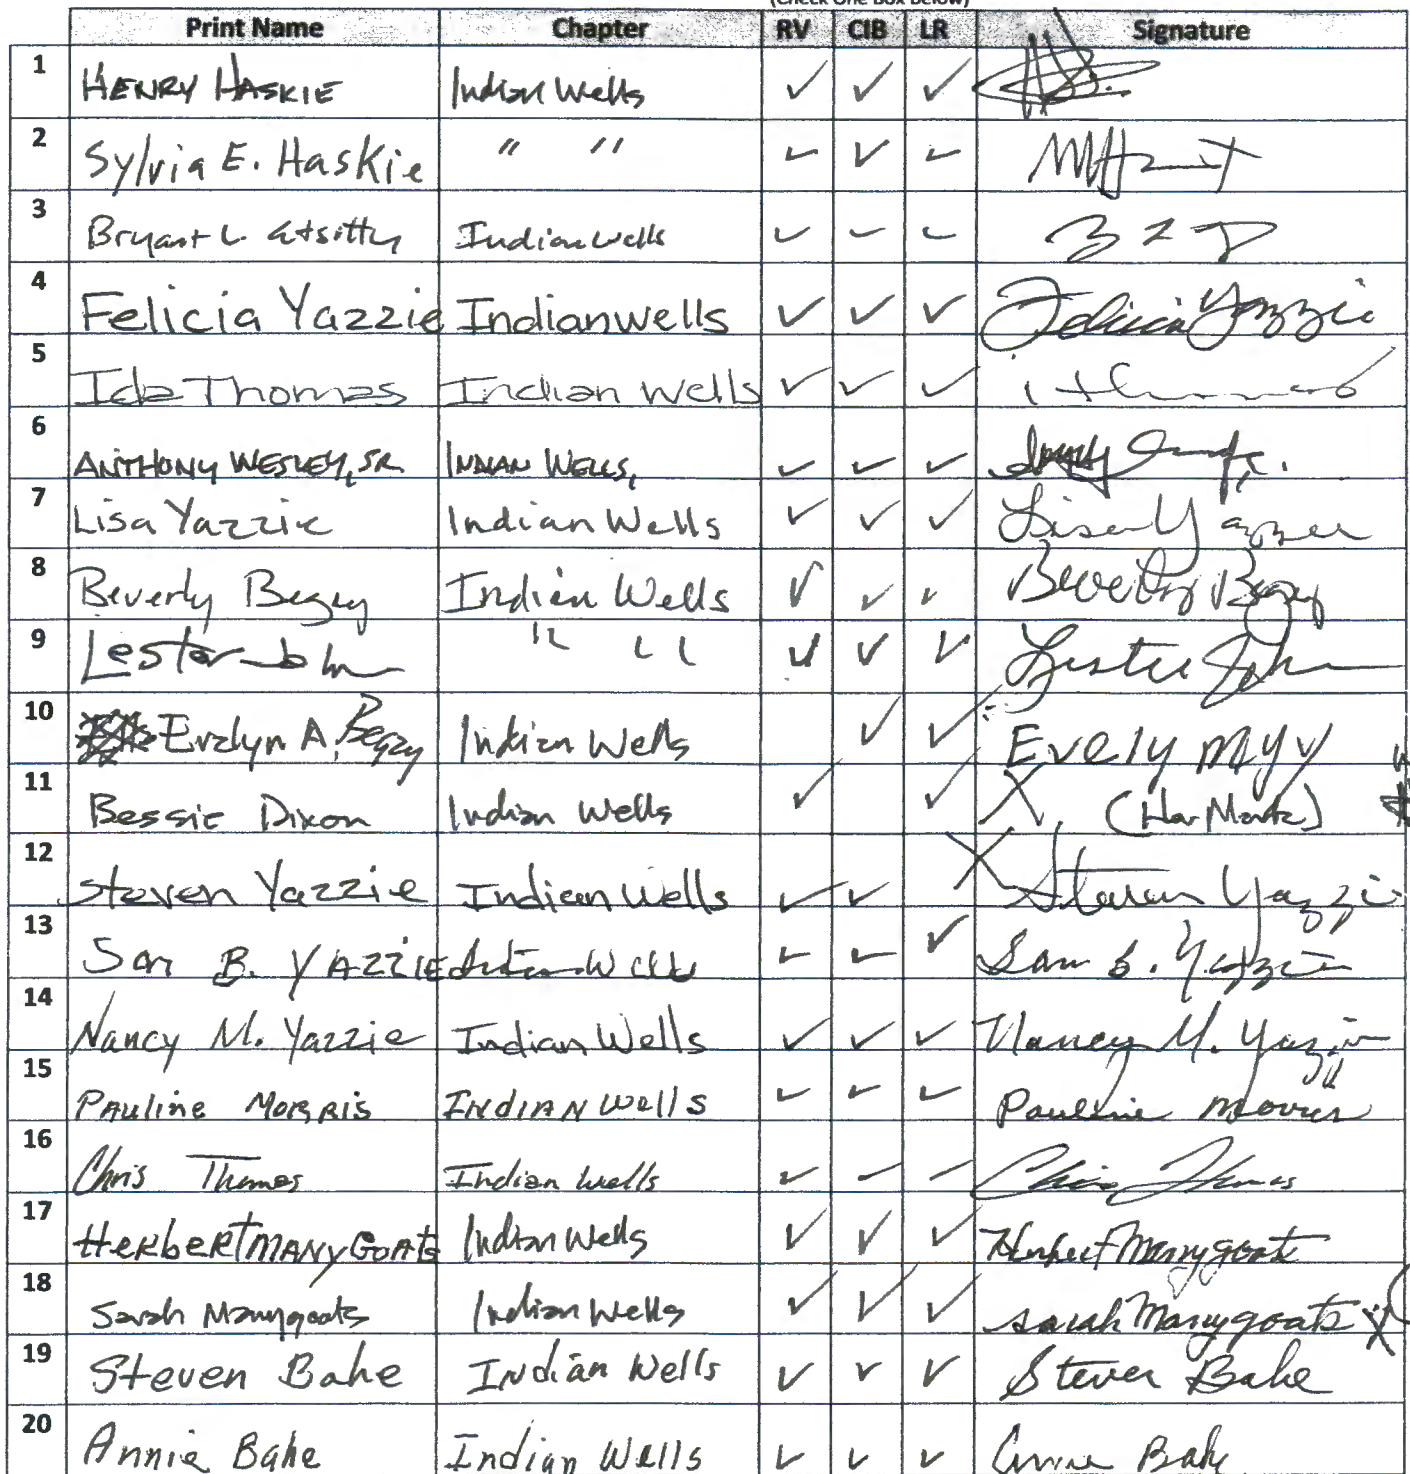 (Check One Box Below)
Print Name Chapter RV CIB LR Signature
1 HENRY HASKIE Indian Wells ✓ ✓ ✓
2 Sylvia E. Haskie " " ✓ ✓ ✓
3 Bryant L. Etsitty Indian Wells ✓ ✓ ✓
4 Felicia Yazzie Indianwells ✓ ✓ ✓ Felicia Yazzie
5 Ida Thomas Indian Wells ✓ ✓ ✓
6 ANTHONY WESLEY, SR. INDIAN WELLS, ✓ ✓ ✓
7 Lisa Yazzie Indian Wells ✓ ✓ ✓ Lisa Yazzie
8 Beverly Begay Indian Wells ✓ ✓ ✓ Beverly Begay
9 Lester John " " ✓ ✓ ✓ Lester John
10 Evelyn A. Begay Indian Wells ✓ ✓ Evely
11 Bessie Dixon Indian Wells ✓ ✓ X (Her Mark)
12 Steven Yazzie Indian Wells ✓ ✓ X Steven Yazzie
13 Sam B. YAZZIE Indian Wells ✓ ✓ ✓ Sam B. Yazzie
14 Nancy M. Yazzie Indian Wells ✓ ✓ ✓ Nancy M. Yazzie
15 PAuline MORRis INdIAN Wells ✓ ✓ ✓ Pauline Morris
16 Chris Thomas Indian Wells ✓ ✓ ✓ Chris Thomas
17 HerbeRT MANYGOATs Indian Wells ✓ ✓ ✓ Herbert Manygoats
18 Sarah Manygoats Indian Wells ✓ ✓ ✓ Sarah Manygoats X
19 Steven Bahe Indian Wells ✓ ✓ ✓ Steven Bahe
20 Annie Bahe Indian Wells ✓ ✓ ✓ Annie Bahe